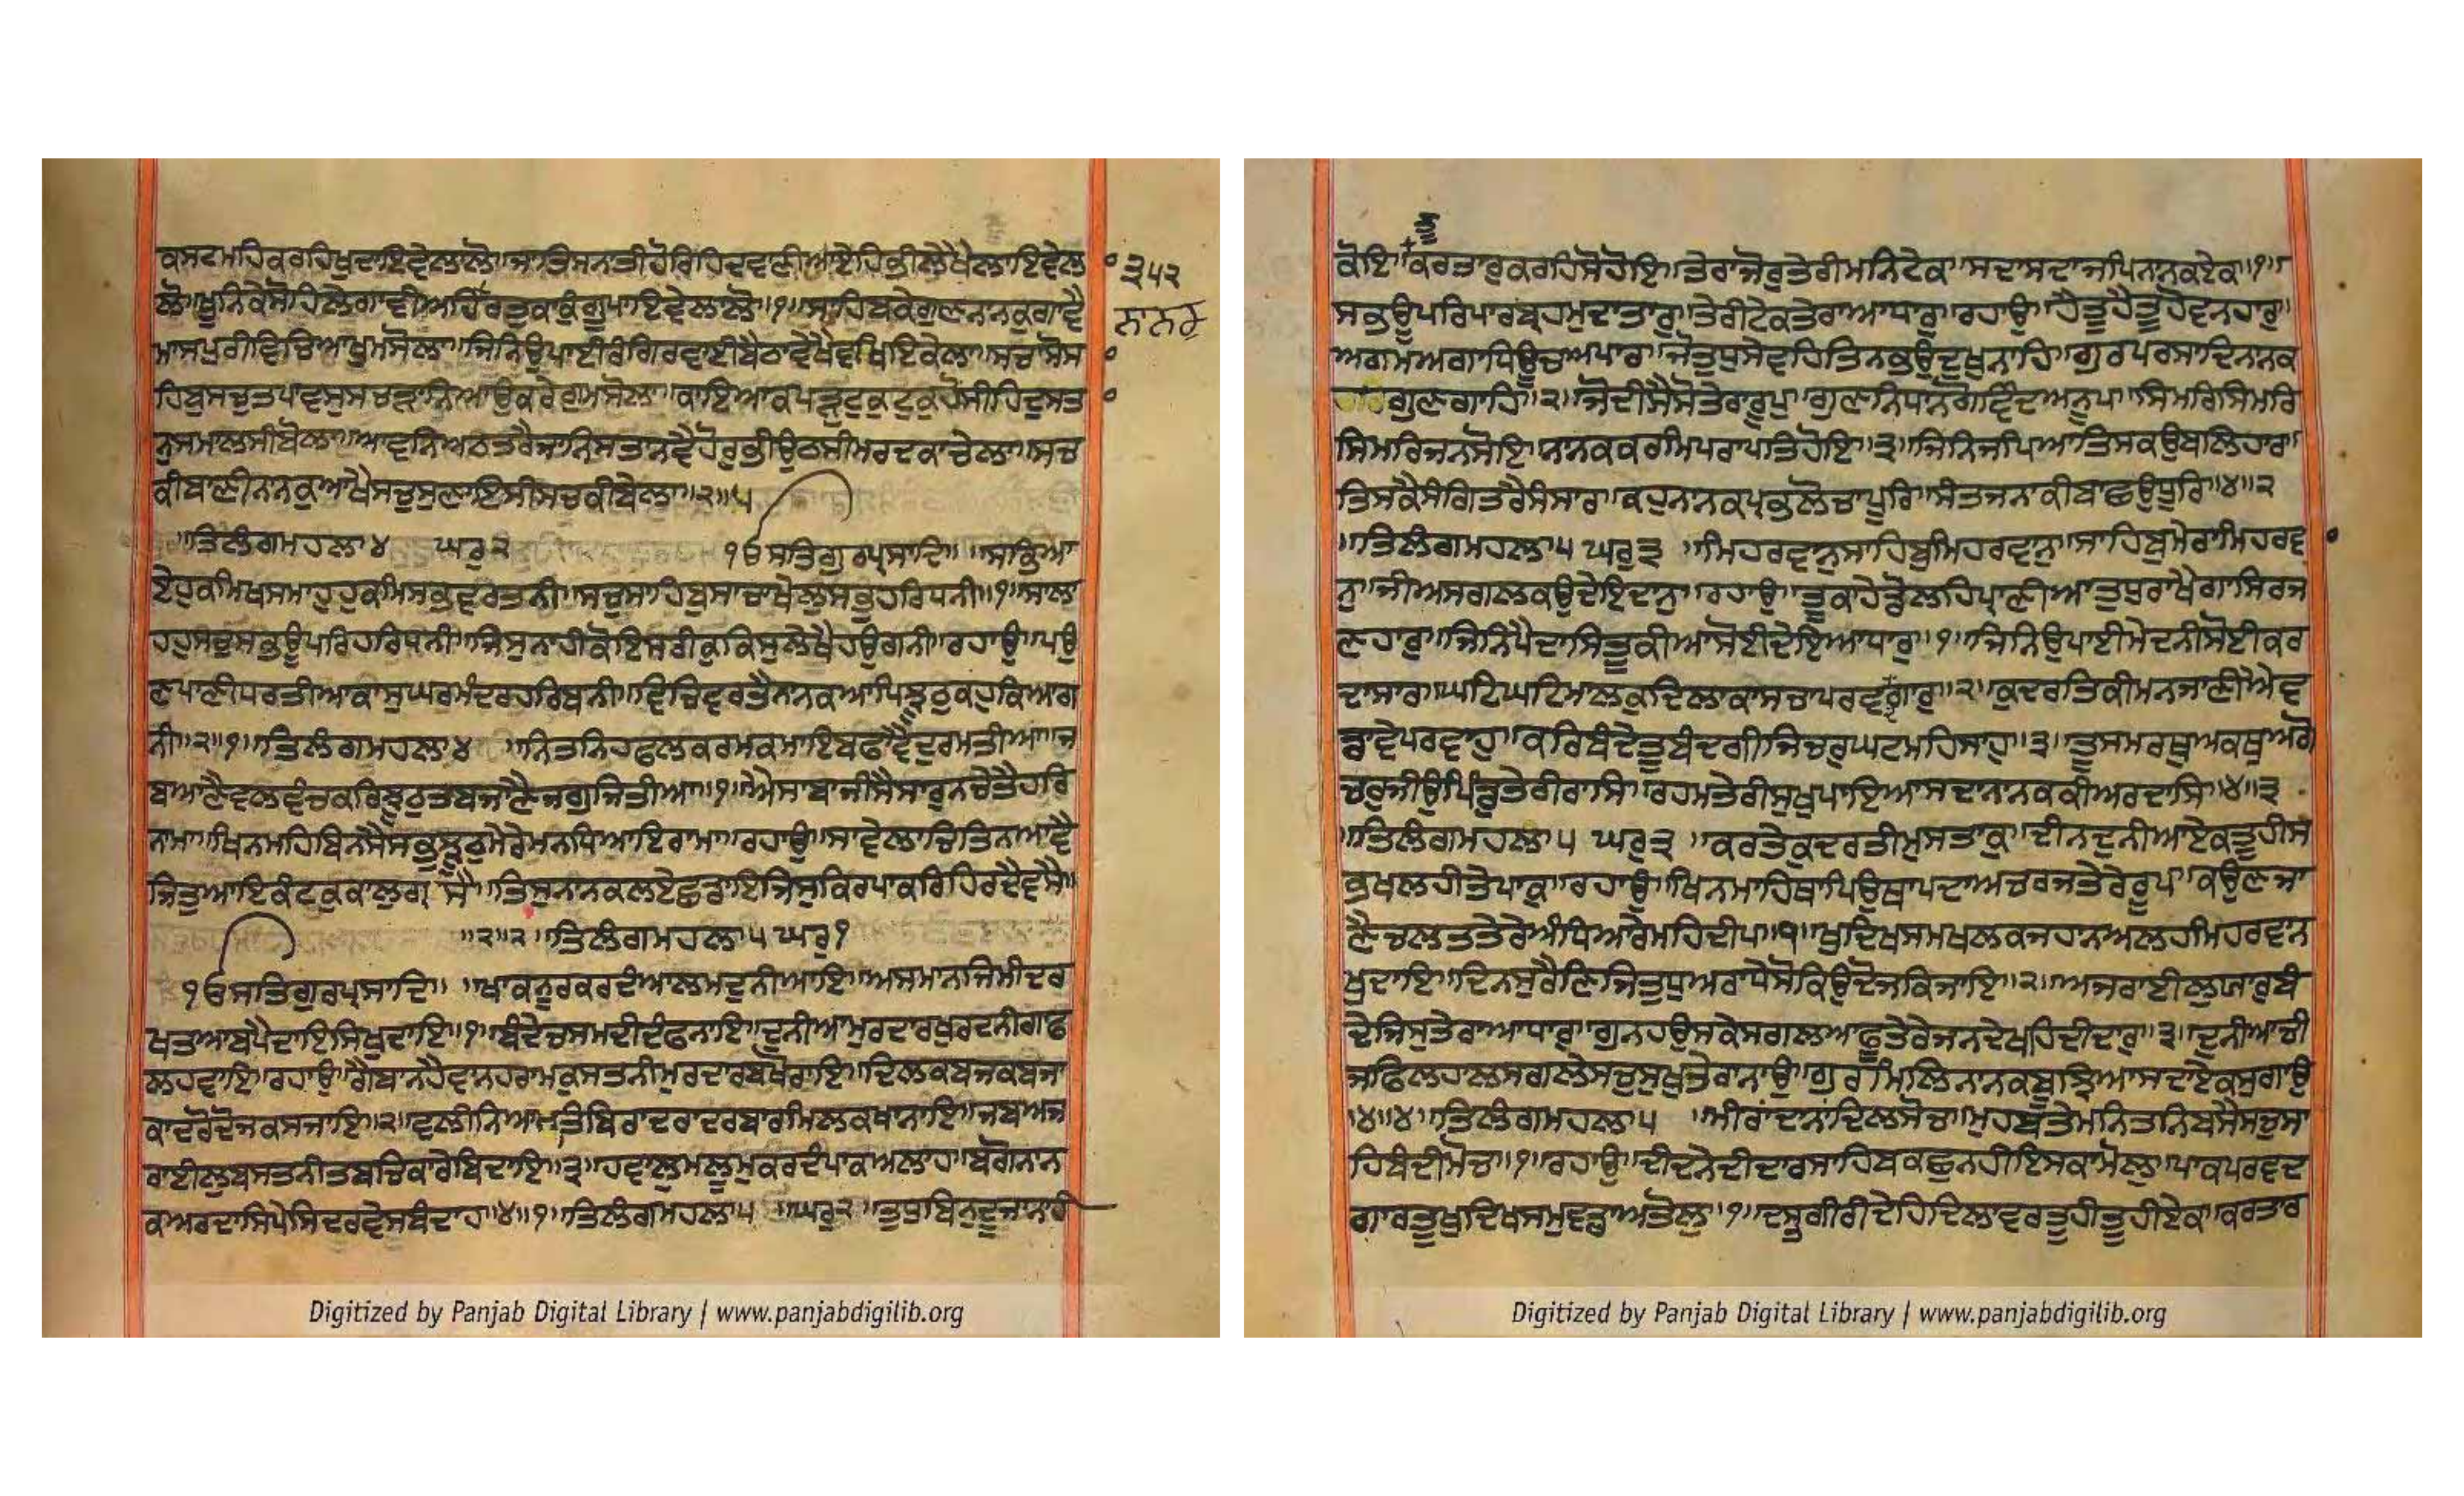 ਕਸਟਮਹਿਕਰਹਿਖੁਦਾਇਵੇਲਾਲੋ॥ਜਾਤਿਸਨਤੀਹੋਰਿਹਿਦਵਾਣੀਆਏਹਿਭੀਲੇਖੈਲਾਇਵੇਲਾ
ਲੋ॥ਖੂਨਕੇਸੋਹਿਲੇਗਾਵੀਅਹਿਰਤੁਕਾਕੁੰਗੂਪਾਇਵੇਲਾਲੋ॥੧॥ਸਾਹਿਬਕੇਗੁਣਨਾਨਕੁਗਾਵੈ
ਮਾਸਪੁਰੀਵਿਚਿਆਖੁਮਸੋਲਾ॥ਜਿਨਿਉਪਾਈਰੰਗਿਰਵਾਈਬੈਠਾਵੇਖੈਵਖਿਇਕੇਲਾ॥ਸਚਾਸੋਸਾ
ਹਿਬੁਸਚੁਤਪਾਵਸੁਸਚੜਾਨਿਆਉਕਰੇਗੁਮਸੋਲਾ॥ਕਾਇਆਕਪੜੁਟੁਕੁਟੁਕੁਹੋਸੀਹਿਦੁਸਤਾ
ਨੁਸਮਾਲਸੀਬੋਲਾ॥ਆਵਨਿਅਠਤਰੈਜਾਨਿਸਤਾਨਵੈਹੋਰੁਭੀਉਠਸੀਮਰਦਕਾਚੇਲਾ॥ਸਚ
ਕੀਬਾਣੀਨਾਨਕੁਆਖੈਸਚੁਸੁਣਾਇਸੀਸਚਕੀਬੇਲਾ॥੨॥੫
॥ਤਿਲੰਗਮਹਲਾ੪ ਘਰੁ੨ ੧ਓਸਤਿਗੁਰਪ੍ਰਸਾਦਿ॥ ॥ਸਭਿਆ
ਏਹੁਕਮਿਖਸਮਾਹੁਹੁਕਮਿਸਭਵਰਤਨੀ॥ਸਚੁਸਾਹਿਬੁਸਾਚਾਖੇਲੁਸਭੁਹਰਿਧਨੀ॥੧॥ਸਾਲਾ
ਹਹੁਸਚੁਸਭਊਪਰਿਹਰਿਧਨੀ॥ਜਿਸੁਨਾਹੀਕੋਇਸਰੀਕੁਕਿਸੁਲੇਖੈਹਉਗਨੀ॥ਰਹਾਉ॥ਪਉ
ਣਪਾਣੀਧਰਤੀਆਕਾਸੁਘਰਮੰਦਰਹਰਿਬਨੀ॥ਵਿਚਿਵਰਤੈਨਾਨਕਆਪਿਝੂਠੁਕਹੁਕਿਆਗ
ਨੀ॥੨॥੧॥ਤਿਲੰਗਮਹਲਾ੪ ॥ਨਿਤਨਿਹਫਲਕਰਮਕਮਾਇਬਫਾਵੈਦੁਰਮਤੀਆ॥ਜ
ਬਆਣੈਵਲਵੰਚਕਰਿਝੂਠੁਤਬਜਾਣੈਜਗੁਜਿਤੀਆ॥੧॥ਐਸਾਬਾਜੀਸੈਸਾਰੁਨਚੇਤੈਹਰਿ
ਨਾਮਾ॥ਖਿਨਮਹਿਬਿਨਸੈਸਭੁਝੂਠੁਮੇਰੇਮਨਧਿਆਇਰਾਮਾ॥ਰਹਾਉ॥ਸਾਵੇਲਾਚਿਤਿਨਆਵੈ
ਜਿਤੁਆਇਕੰਟਕੁਕਾਲੁਗ੍ਰਸੈ॥ਤਿਸੁਨਾਨਕਲਏਛਡਾਇਜਿਸੁਕਿਰਪਾਕਰਿਹਿਰਦੈਵਸੈ॥
॥੨॥੨॥ਤਿਲੰਗਮਹਲਾ੫ਘਰੁ੧
੧ਓਸਤਿਗੁਰਪ੍ਰਸਾਦਿ॥ ॥ਖਾਕਨੂਰਕਰਦੰਆਲਮਦੁਨੀਆਇ॥ਅਸਮਾਨਜਿਮੀਦਰ
ਖਤਆਬਪੈਦਾਇਸਿਖੁਦਾਇ॥੧॥ਬੰਦੇਚਸਮਦੀਦੰਫਨਾਇ॥ਦੁਨੀਆਮੁਰਦਾਰਖੁਰਦਨੀਗਾਫ
ਲਹਵਾਇ॥ਰਹਾਉ॥ਗੈਬਾਨਹੈਵਾਨਹਰਾਮਕੁਸਤਨੀਮੁਰਦਾਰਬਖੋਰਾਇ॥ਦਿਲਕਬਜਕਬਜਾ
ਕਾਦਰੋਦੋਜਕਸਜਾਇ॥੨॥ਵਲੀਨਿਆਮਤਿਬਿਰਾਦਰਾਦਰਬਾਰਮਿਲਕਖਾਨਾਇ॥ਜਬਅਜ
ਰਾਈਲੁਬਸਤਨੀਤਬਚਿਕਾਰੇਬਿਦਾਇ॥੩॥ਹਵਾਲੁਮਾਲੂਮੁਕਰਦੰਪਾਕਅਲਾਹ॥ਬੁਗੋਨਾਨ
ਕਅਰਦਾਸਿਪੇਸਿਦਰਵੇਸਬੰਦਾਹ॥੪॥੧॥ਤਿਲੰਗਮਹਲਾ੫ ॥ਘਰੁ੨ ॥ਤੁਧੁਬਿਨੁਦੂਜਾਨਾਹੀ
੩੫੨
ਨਾਨਕ
ਕੋਇ॥ਕਰਤਾਰੁਕਰਹਿਸੋਹੋਇ॥ਤੇਰਾਜੋਰੁਤੇਰੀਮਨਿਟੇਕ॥ਸਦਾਸਦਾਜਪਿਨਾਨਕਏਕ॥੧॥
ਸਭਊਪਰਿਪਾਰਬ੍ਰਹਮੁਦਾਤਾਰੁ॥ਤੇਰੀਟੇਕਤੇਰਾਆਧਾਰੁ॥ਰਹਾਉ॥ਹੈਤੂਹੈਤੂਹੋਵਨਹਾਰੁ॥
ਅਗਮਅਗਾਧਿਊਚਅਪਾਰ॥ਜੋਤੁਧੁਸੇਵਹਿਤਿਨਭਉਦੁਖੁਨਾਹਿ॥ਗੁਰਪਰਸਾਦਿਨਾਨਕ
ਗੁਣਗਾਹਿ॥੨॥ਜੋਦੀਸੈਸੋਤੇਰਾਰੂਪੁ॥ਗੁਣਨਿਧਾਨਗੋਵਿੰਦਅਨੂਪ॥ਸਿਮਰਿਸਿਮਰਿ
ਸਿਮਰਿਜਨਸੋਇ॥ਨਾਨਕਕਰਮਿਪਰਾਪਤਿਹੋਇ॥੩॥ਜਿਨਿਜਪਿਆਤਿਸਕਉਬਲਿਹਾਰ॥
ਤਿਸਕੈਸੰਗਿਤਰੈਸੰਸਾਰ॥ਕਹੁਨਾਨਕਪ੍ਰਭਲੋਚਾਪੂਰਿ॥ਸੰਤਜਨਾਕੀਬਾਛਉਧੂਰਿ॥੪॥੨
॥ਤਿਲੰਗਮਹਲਾ੫ਘਰੁ੩ ॥ਮਿਹਰਵਾਨੁਸਾਹਿਬੁਮਿਹਰਵਾਨੁ॥ਸਾਹਿਬੁਮੇਰਾਮਿਹਰਵਾ
ਨੁ॥ਜੀਅਸਗਲਕਉਦੇਇਦਾਨੁ॥ਰਹਾਉ॥ਤੂਕਾਹੇਡੋਲਹਿਪ੍ਰਾਣੀਆਤੁਧੁਰਾਖੈਗਾਸਿਰਜ
ਣਹਾਰੁ॥ਜਿਨਿਪੈਦਾਸਿਤੂਕੀਆਸੋਈਦੇਇਆਧਾਰੁ॥੧॥ਜਿਨਿਉਪਾਈਮੇਦਨੀਸੋਈਕਰ
ਦਾਸਾਰ॥ਘਟਿਘਟਿਮਾਲਕੁਦਿਲਾਕਾਸਚਾਪਰਵਦਗਾਰੁ॥੨॥ਕੁਦਰਤਿਕੀਮਨਜਾਣੀਐਵ
ਡਾਵੇਪਰਵਾਹੁ॥ਕਰਿਬੰਦੇਤੂਬੰਦਗੀਜਿਚਰੁਘਟਮਹਿਸਾਹੁ॥੩॥ਤੂਸਮਰਥੁਅਕਥੁਅਗੋ
ਚਰੁਜੀਉਪਿੰਡੁਤੇਰੀਰਾਸਿ॥ਰਹਮਤੇਰੀਸੁਖੁਪਾਇਆਸਦਾਨਾਨਕਕੀਅਰਦਾਸਿ॥੪॥੩
॥ਤਿਲੰਗਮਹਲਾ੫ ਘਰੁ੩ ॥ਕਰਤੇਕੁਦਰਤੀਮੁਸਤਾਕੁ॥ਦੀਨਦੁਨੀਆਏਕਤੂਹੀਸ
ਭਖਲਹੀਤੇਪਾਕੁ॥ਰਹਾਉ॥ਖਿਨਮਾਹਿਥਾਪਿਉਥਾਪਦਾਅਚਰਜਤੇਰੇਰੂਪ॥ਕਉਣਜਾ
ਣੈਚਲਤਤੇਰੇਅੰਧਿਆਰੇਮਹਿਦੀਪ॥੧॥ਖੁਦਿਖਸਮਖਲਕਜਹਾਨਅਲਹਮਿਹਰਵਾਨ
ਖੁਦਾਇ॥ਦਿਨਸੁਰੈਣਿਜਿਤੁਧੁਅਰਾਧੇਸੋਕਿਉਦੋਜਕਿਜਾਇ॥੨॥ਅਜਰਾਈਲੁਯਾਰੁਬੰ
ਦੇਜਿਸੁਤੇਰਾਆਧਾਰੁ॥ਗੁਨਹਉਸਕੇਸਗਲਆਫੂਤੇਰੇਜਨਦੇਖਹਿਦੀਦਾਰੁ॥੩॥ਦੁਨੀਆਚੀ
ਜਫਿਲਹਾਲਸਗਲੇਸਚੁਸੁਖੁਤੇਰਾਨਾਉ॥ਗੁਰਮਿਲਿਨਾਨਕਬੂਝਿਆਸਦਾਏਕਸੁਗਾਉ
॥੪॥੪॥ਤਿਲੰਗਮਹਲਾ੫ ॥ਮੀਰਾਂਦਾਨਾਂਦਿਲਸੋਚ॥ਮੁਹਬਤੇਮਨਿਤਨਿਬਸੈਸਚੁਸਾ
ਹਿਬੰਦੀਮੋਚ॥੧॥ਰਹਾਉ॥ਦੀਦਨੇਦੀਦਾਰਸਾਹਿਬਕਛੁਨਹੀਇਸਕਾਮੋਲੁ॥ਪਾਕਪਰਵਦ
ਗਾਰਤੂਖੁਦਿਖਸਮੁਵਡਾਅਤੋਲੁ॥੧॥ਦਸ੍ਤਗੀਰੀਦੇਹਿਦਿਲਾਵਰਤੂਹੀਤੂਹੀਏਕ॥ਕਰਤਾਰ
Digitized by Panjab Digital Library | www.panjabdigilib.org
Digitized by Panjab Digital Library | www.panjabdigilib.org